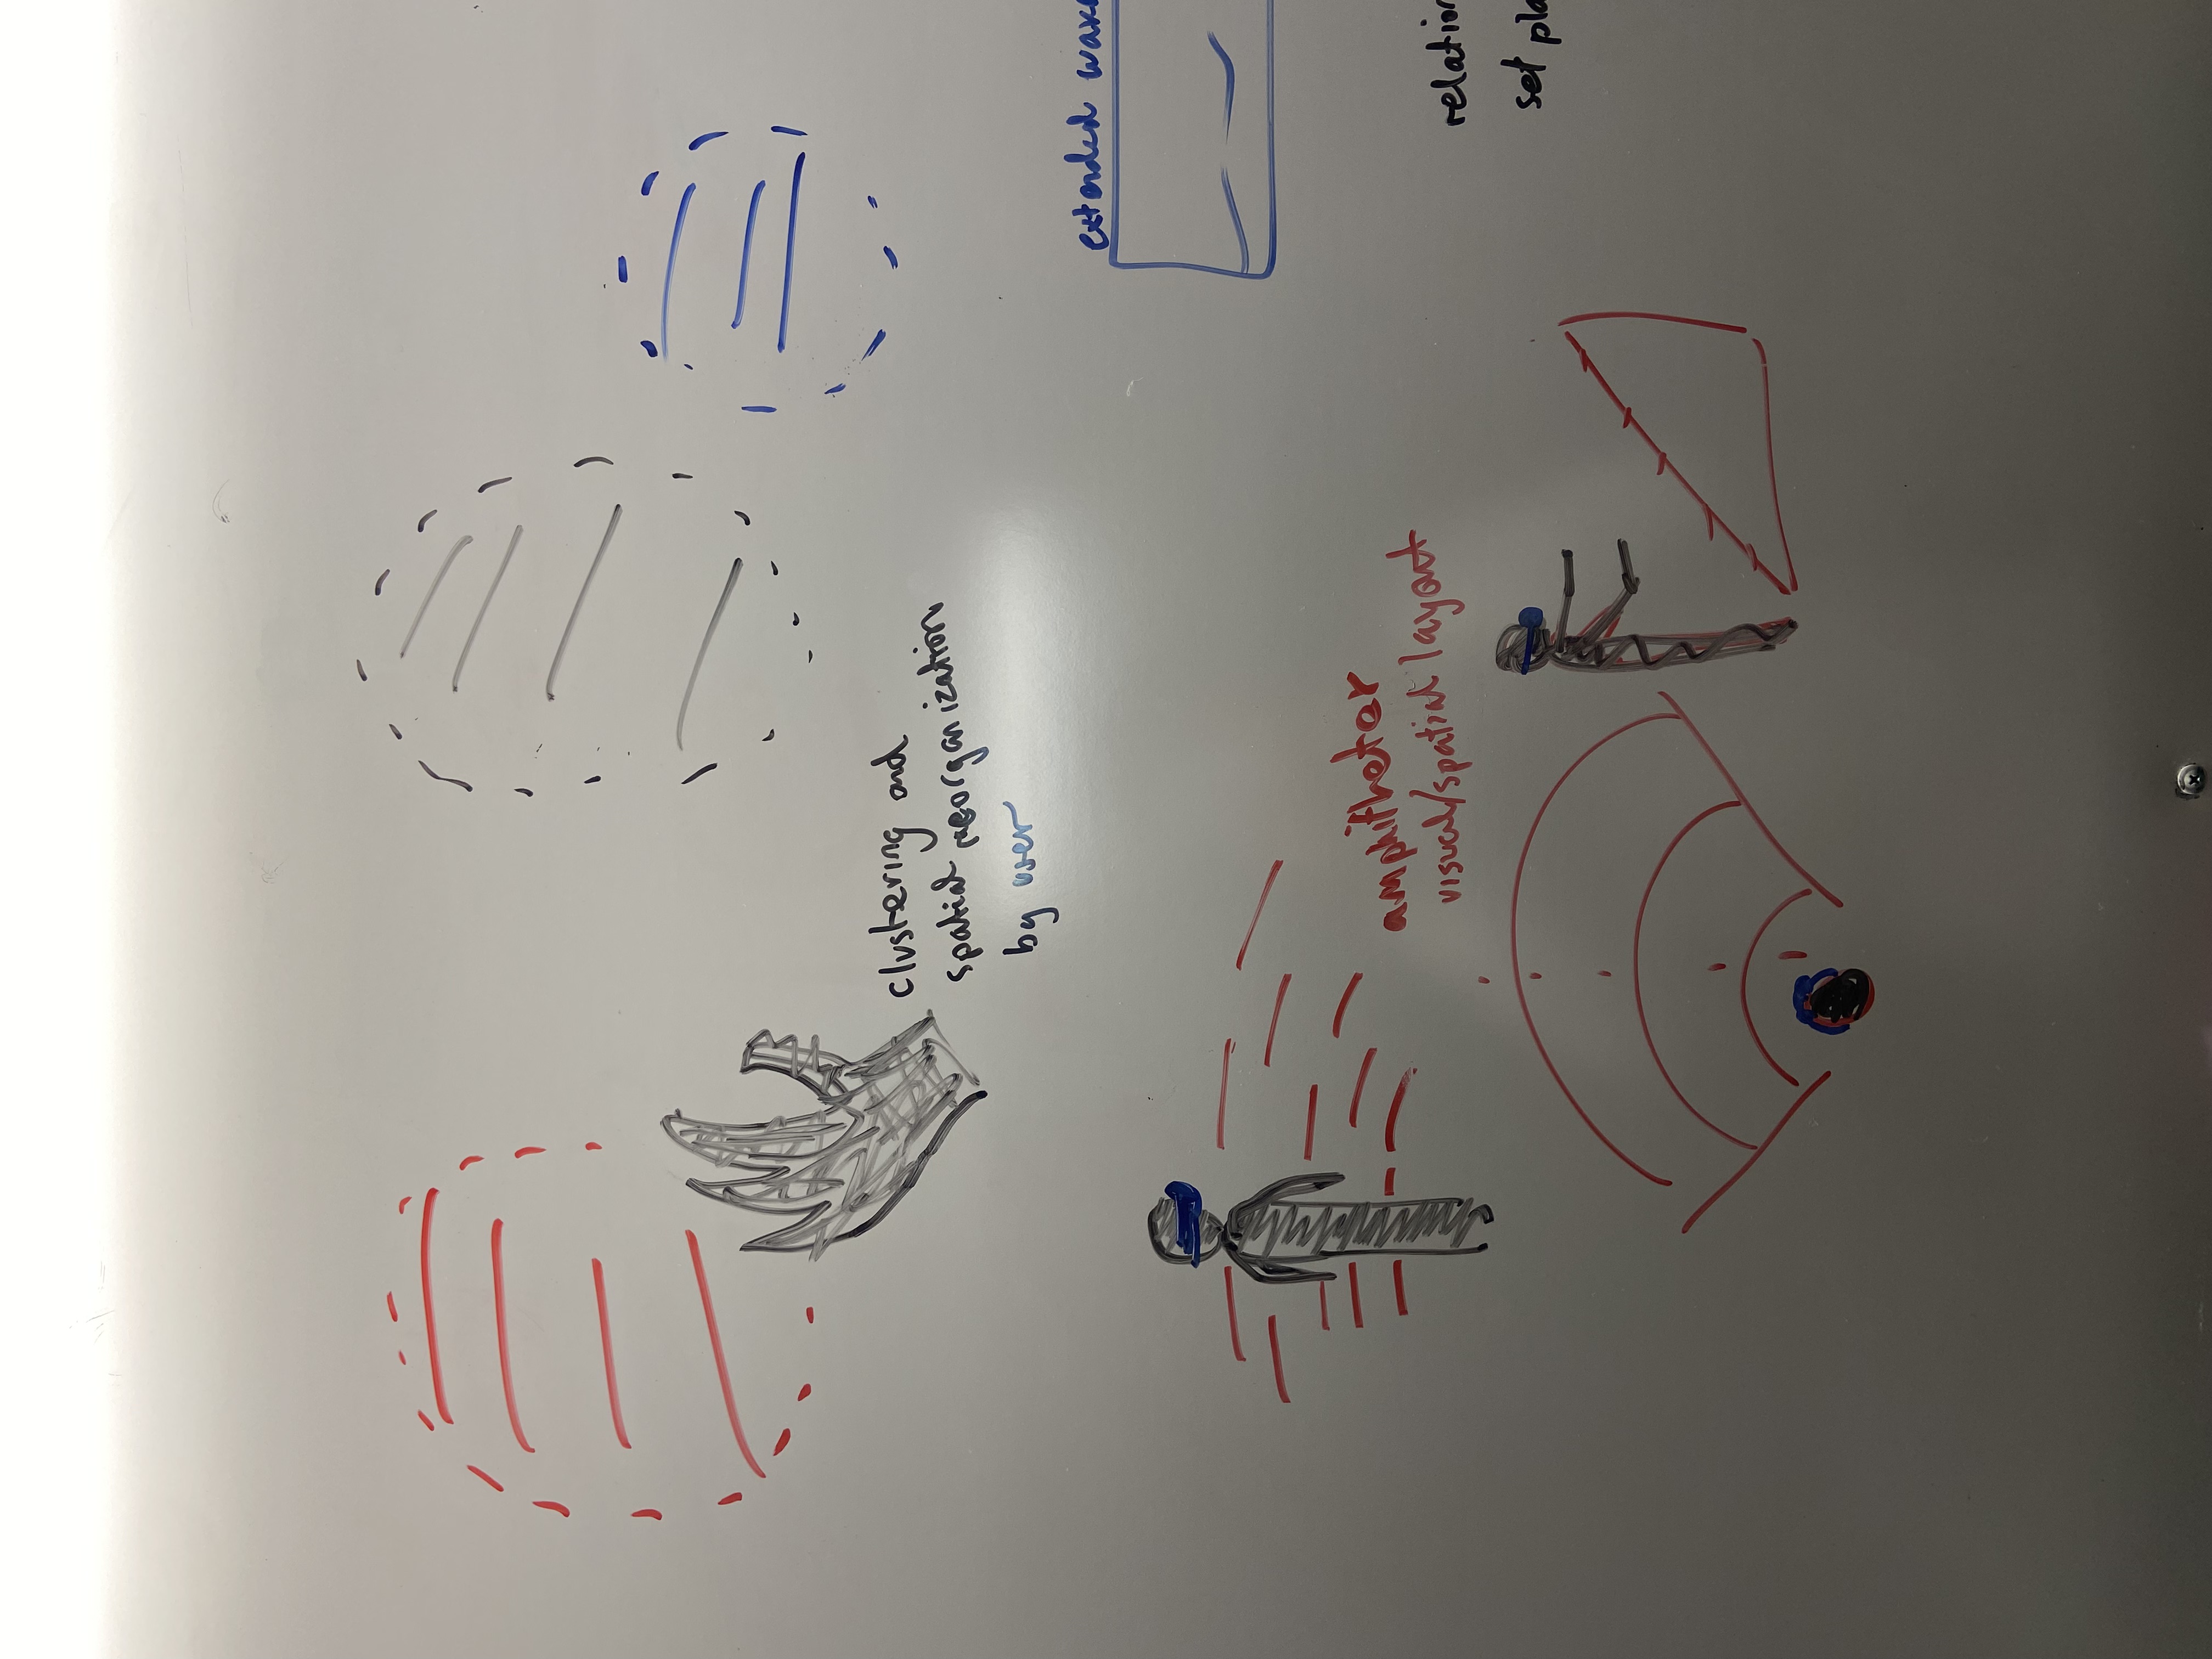 clustering and
spatial reorganization
by user
extended
amphitheter
visual/spatial layout
set